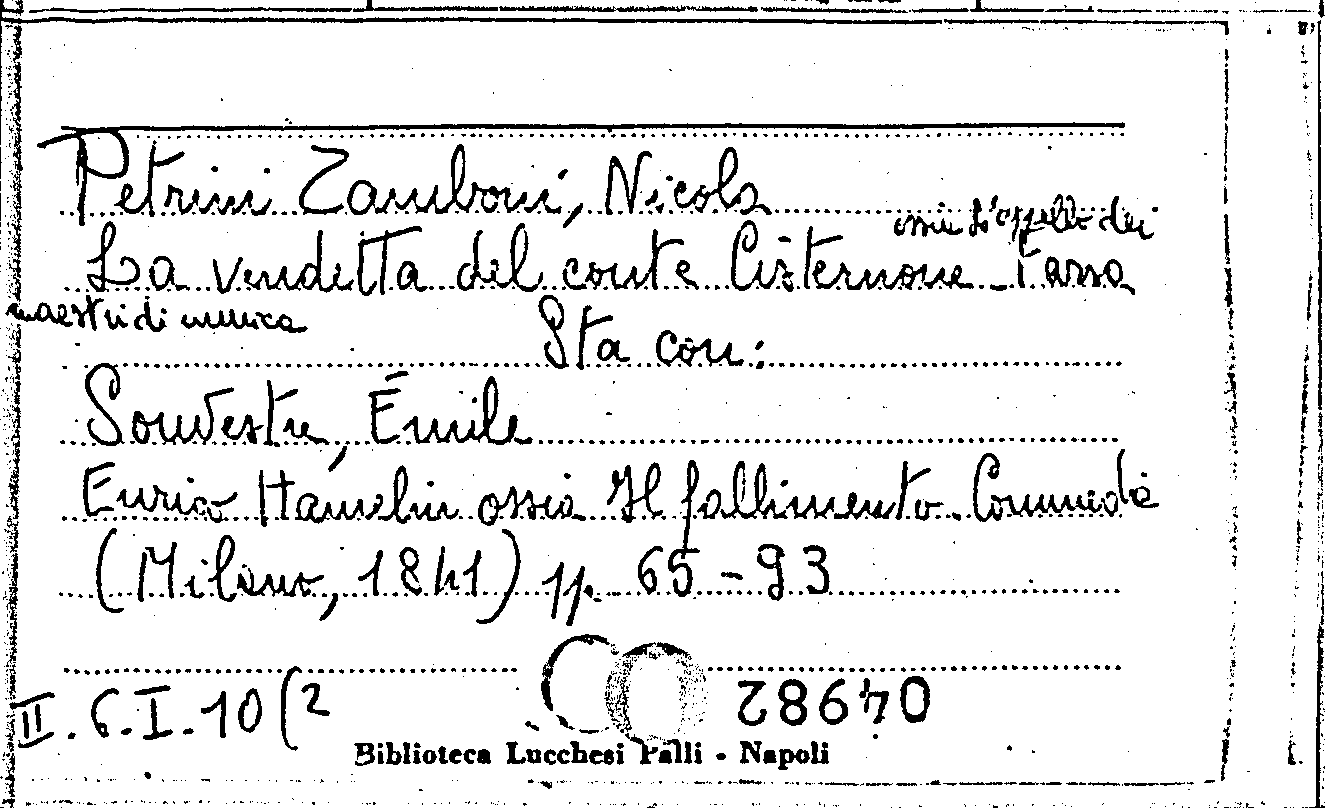 Petrini Zamboni, Nicola
ossia L'appello dei
La vendetta del conte Cisternone. Farsa
maestri di musica
Sta con:
Souvestre, Émile
Enrico Hamelin ossia Il fallimento. Commedia
(Milano, 1841) pp. 65-93
II. 6. I. 10(2
04982
Biblioteca Lucchesi Palli - Napoli